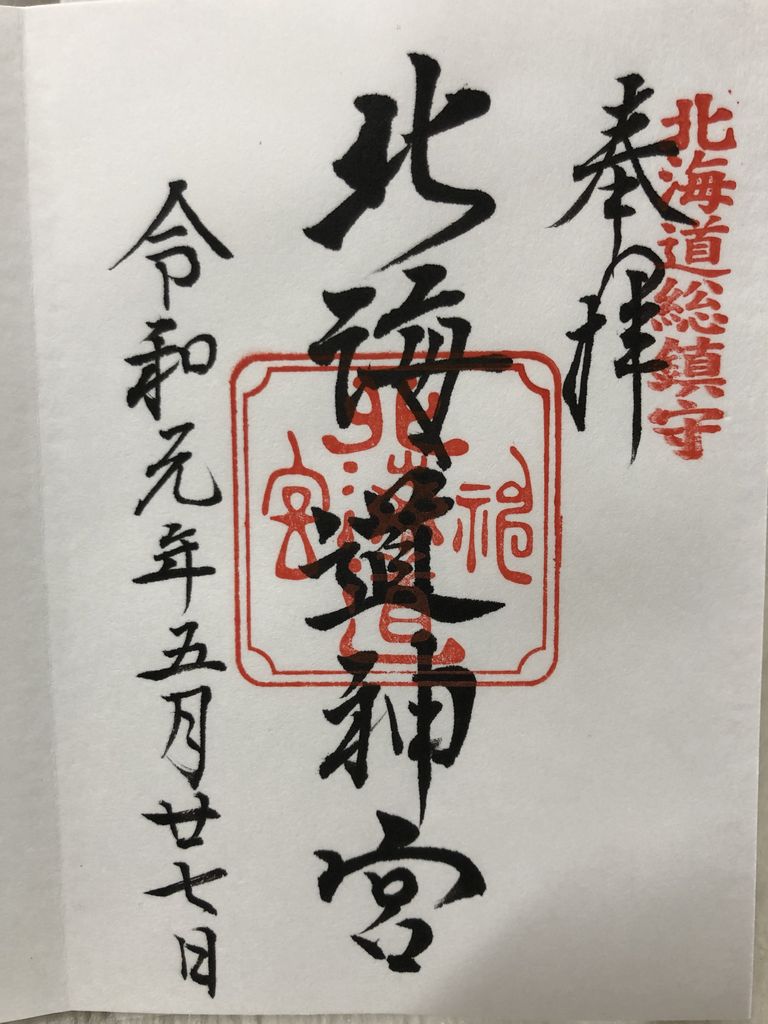 北海道総鎮守
奉拝
北海道神宮
令和元年五月廿七日
北海道神宮